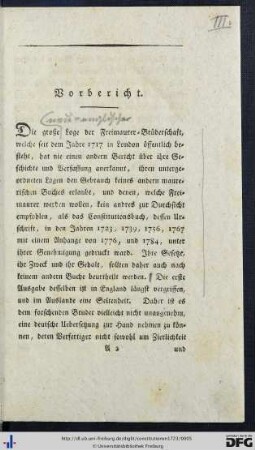 III.
Vorbericht.
(neu)englischer
Die große Loge der Freimaurer-Brüderschaft,
welche seit dem Jahre 1717 in London öffentlich be-
steht, hat nie einen andern Bericht über ihre Ge-
schichte und Verfassung anerkannt, ihren unterge-
ordneten Logen den Gebrauch keines andern maure-
rischen Buches erlaubt, und denen, welche Frei-
maurer werden wollen, kein andres zur Durchsicht
empfohlen, als das Constitutionsbuch, dessen Ur-
schrift, in den Jahren 1723, 1739, 1756, 1767
mit einem Anhange von 1776, und 1784, unter
ihrer Genehmigung gedruckt ward. Ihre Gesetze,
ihr Zweck und ihr Gehalt, sollten daher auch nach
keinem andern Buche beurtheilt werden. Die erste
Ausgabe desselben ist in England längst vergriffen,
und im Auslande eine Seltenheit. Daher ist es
dem forschenden Bruder vielleicht nicht unangenehm,
eine deutsche Uebersetzung zur Hand nehmen zu kön-
nen, deren Verfertiger nicht sowohl um Zierlichkeit
A 2 und
http://dl.ub.uni-freiburg.de/diglit/constitutionen1723/0005
© Universitätsbibliothek Freiburg
gefördert durch die
DFG